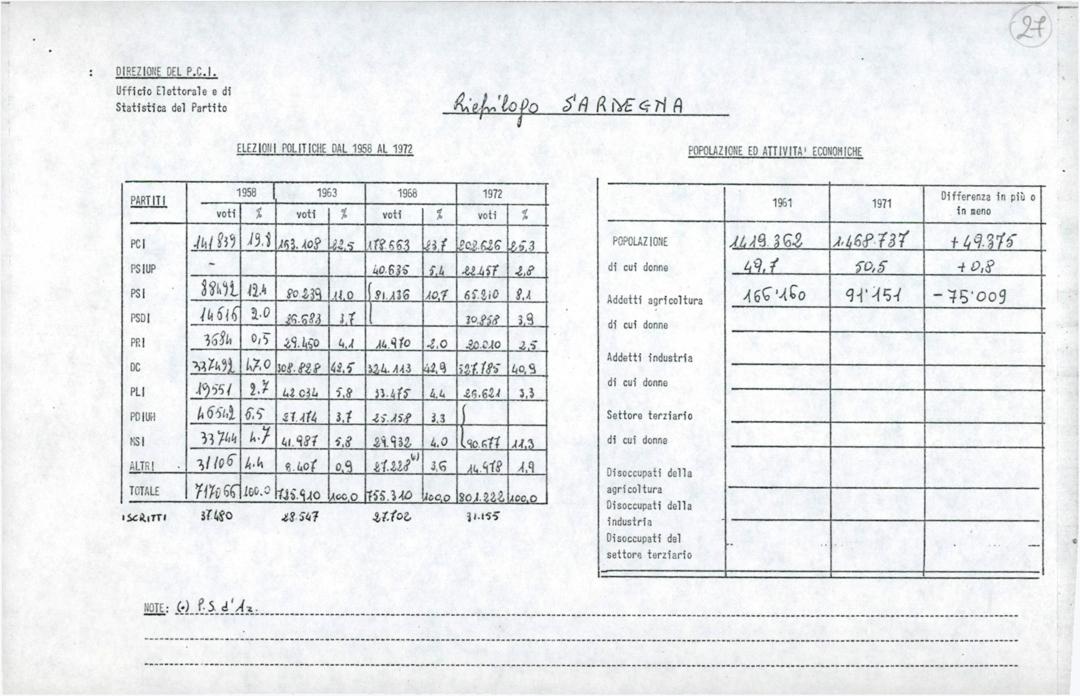 27
DIREZIONE DEL P.C.I.
Ufficio Elettorale e di
Statistica del Partito
Riepilogo SARDEGNA
ELEZIONI POLITICHE DAL 1958 AL 1972
PARTITI 1958 1963 1968 1972
voti % voti % voti % voti %
PCI 141839 19.8 163.108 22,5 178.663 23,7 202.626 25,3
PSIUP - 40.635 5,4 22.457 2,8
PSI 88492 12.4 80.239 11,0 81.136 10,7 65.210 8,1
PSDI 14616 2.0 26.683 3,7 30.858 3,9
PRI 3684 0,5 29.450 4,1 14.970 2.0 20.010 2,5
DC 337492 47.0 308.828 42,5 324.113 42,9 327.785 40,9
PLI 19551 2.7 42.034 5,8 33.475 4,4 26.621 3,3
PDIUM 46542 6.5 27.174 3,7 25.158 3,3
MSI 33744 4.7 41.987 5,8 29.932 4.0 90.677 11,3
ALTRI 31106 4.4 8.407 0,9 27.228 (•) 3,6 14.978 1,9
TOTALE 717066 100.0 735.910 100,0 755.310 100,0 801.222 100,0
ISCRITTI 37.480 28.547 27.702 31.155
POPOLAZIONE ED ATTIVITA' ECONOMICHE
1961 1971 Differenza in più o
in meno
POPOLAZIONE 1.419.362 1.468.737 +49.375
di cui donne 49,7 50,5 +0,8
Addetti agricoltura 166.160 91.151 -75.009
di cui donne
Addetti industria
di cui donne
Settore terziario
di cui donne
Disoccupati della
agricoltura
Disoccupati della
industria
Disoccupati del
settore terziario
NOTE: (•) P.S. d'Az.